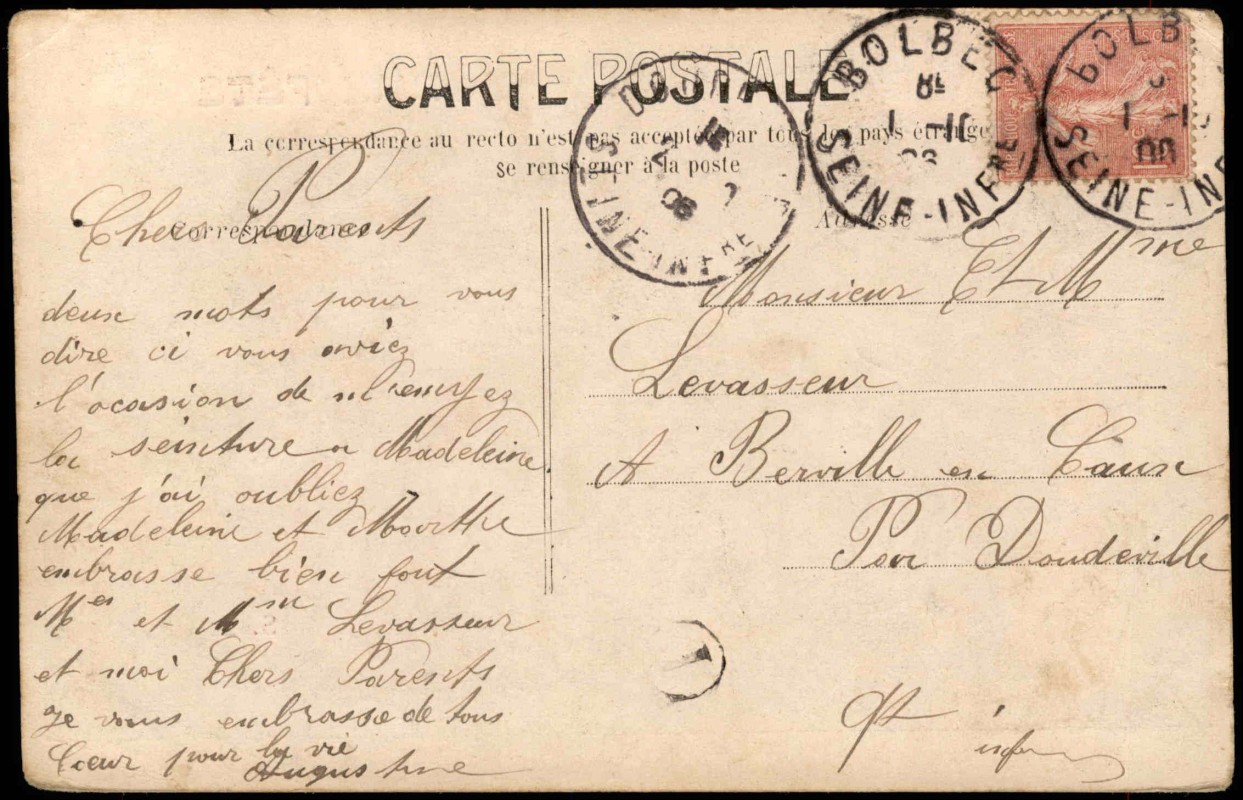 CARTE POSTALE
La correspondance au recto n'est pas acceptée par tous les pays étrange
se renseigner à la poste
Correspondance
Adresse
BOLBEC
SEINE-INFRE
BOLB
SEINE-INF
INFRE
Chers Parents
deux mots pour vous
dire ci vous aviez
l'ocasion de m'envyez
la seinture a Madeleine
que j'ai oubliez
Madeleine et Marthe
embrasse bien fort
Mer et Mm Levasseur
et moi Chers Parents
Je vous embrasse de tous
Cœur pour la vie
Augustine
Monsieur Et Mme
Levasseur
A Berville en Caux
Par Doudeville
Qt infre